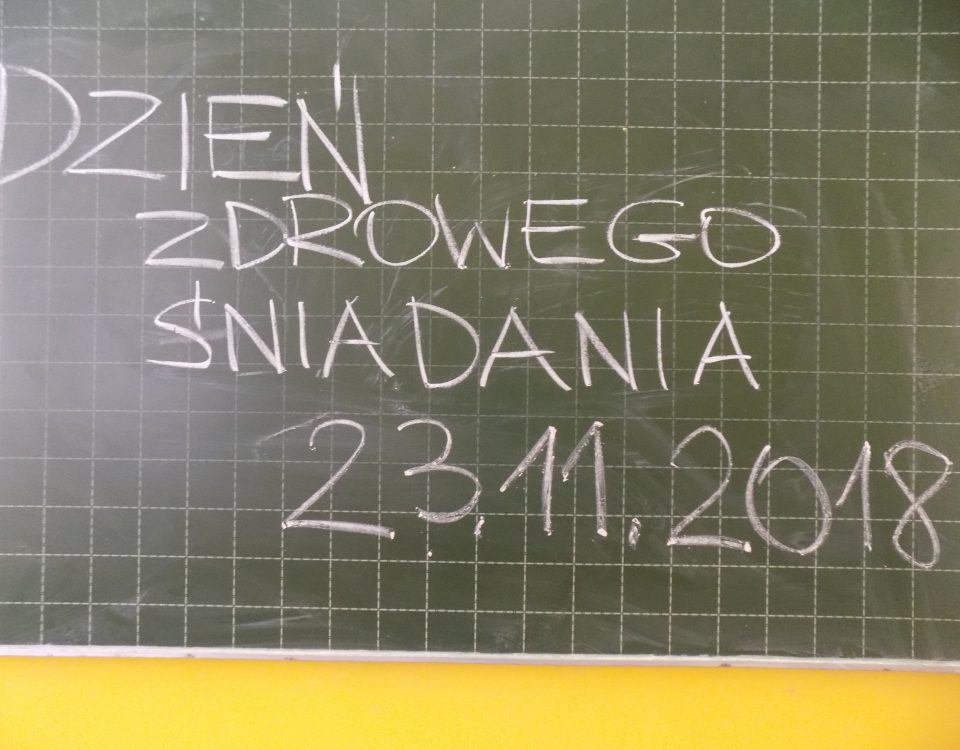 DZIEŃ
ZDROWEGO
ŚNIADANIA
23.11.2018